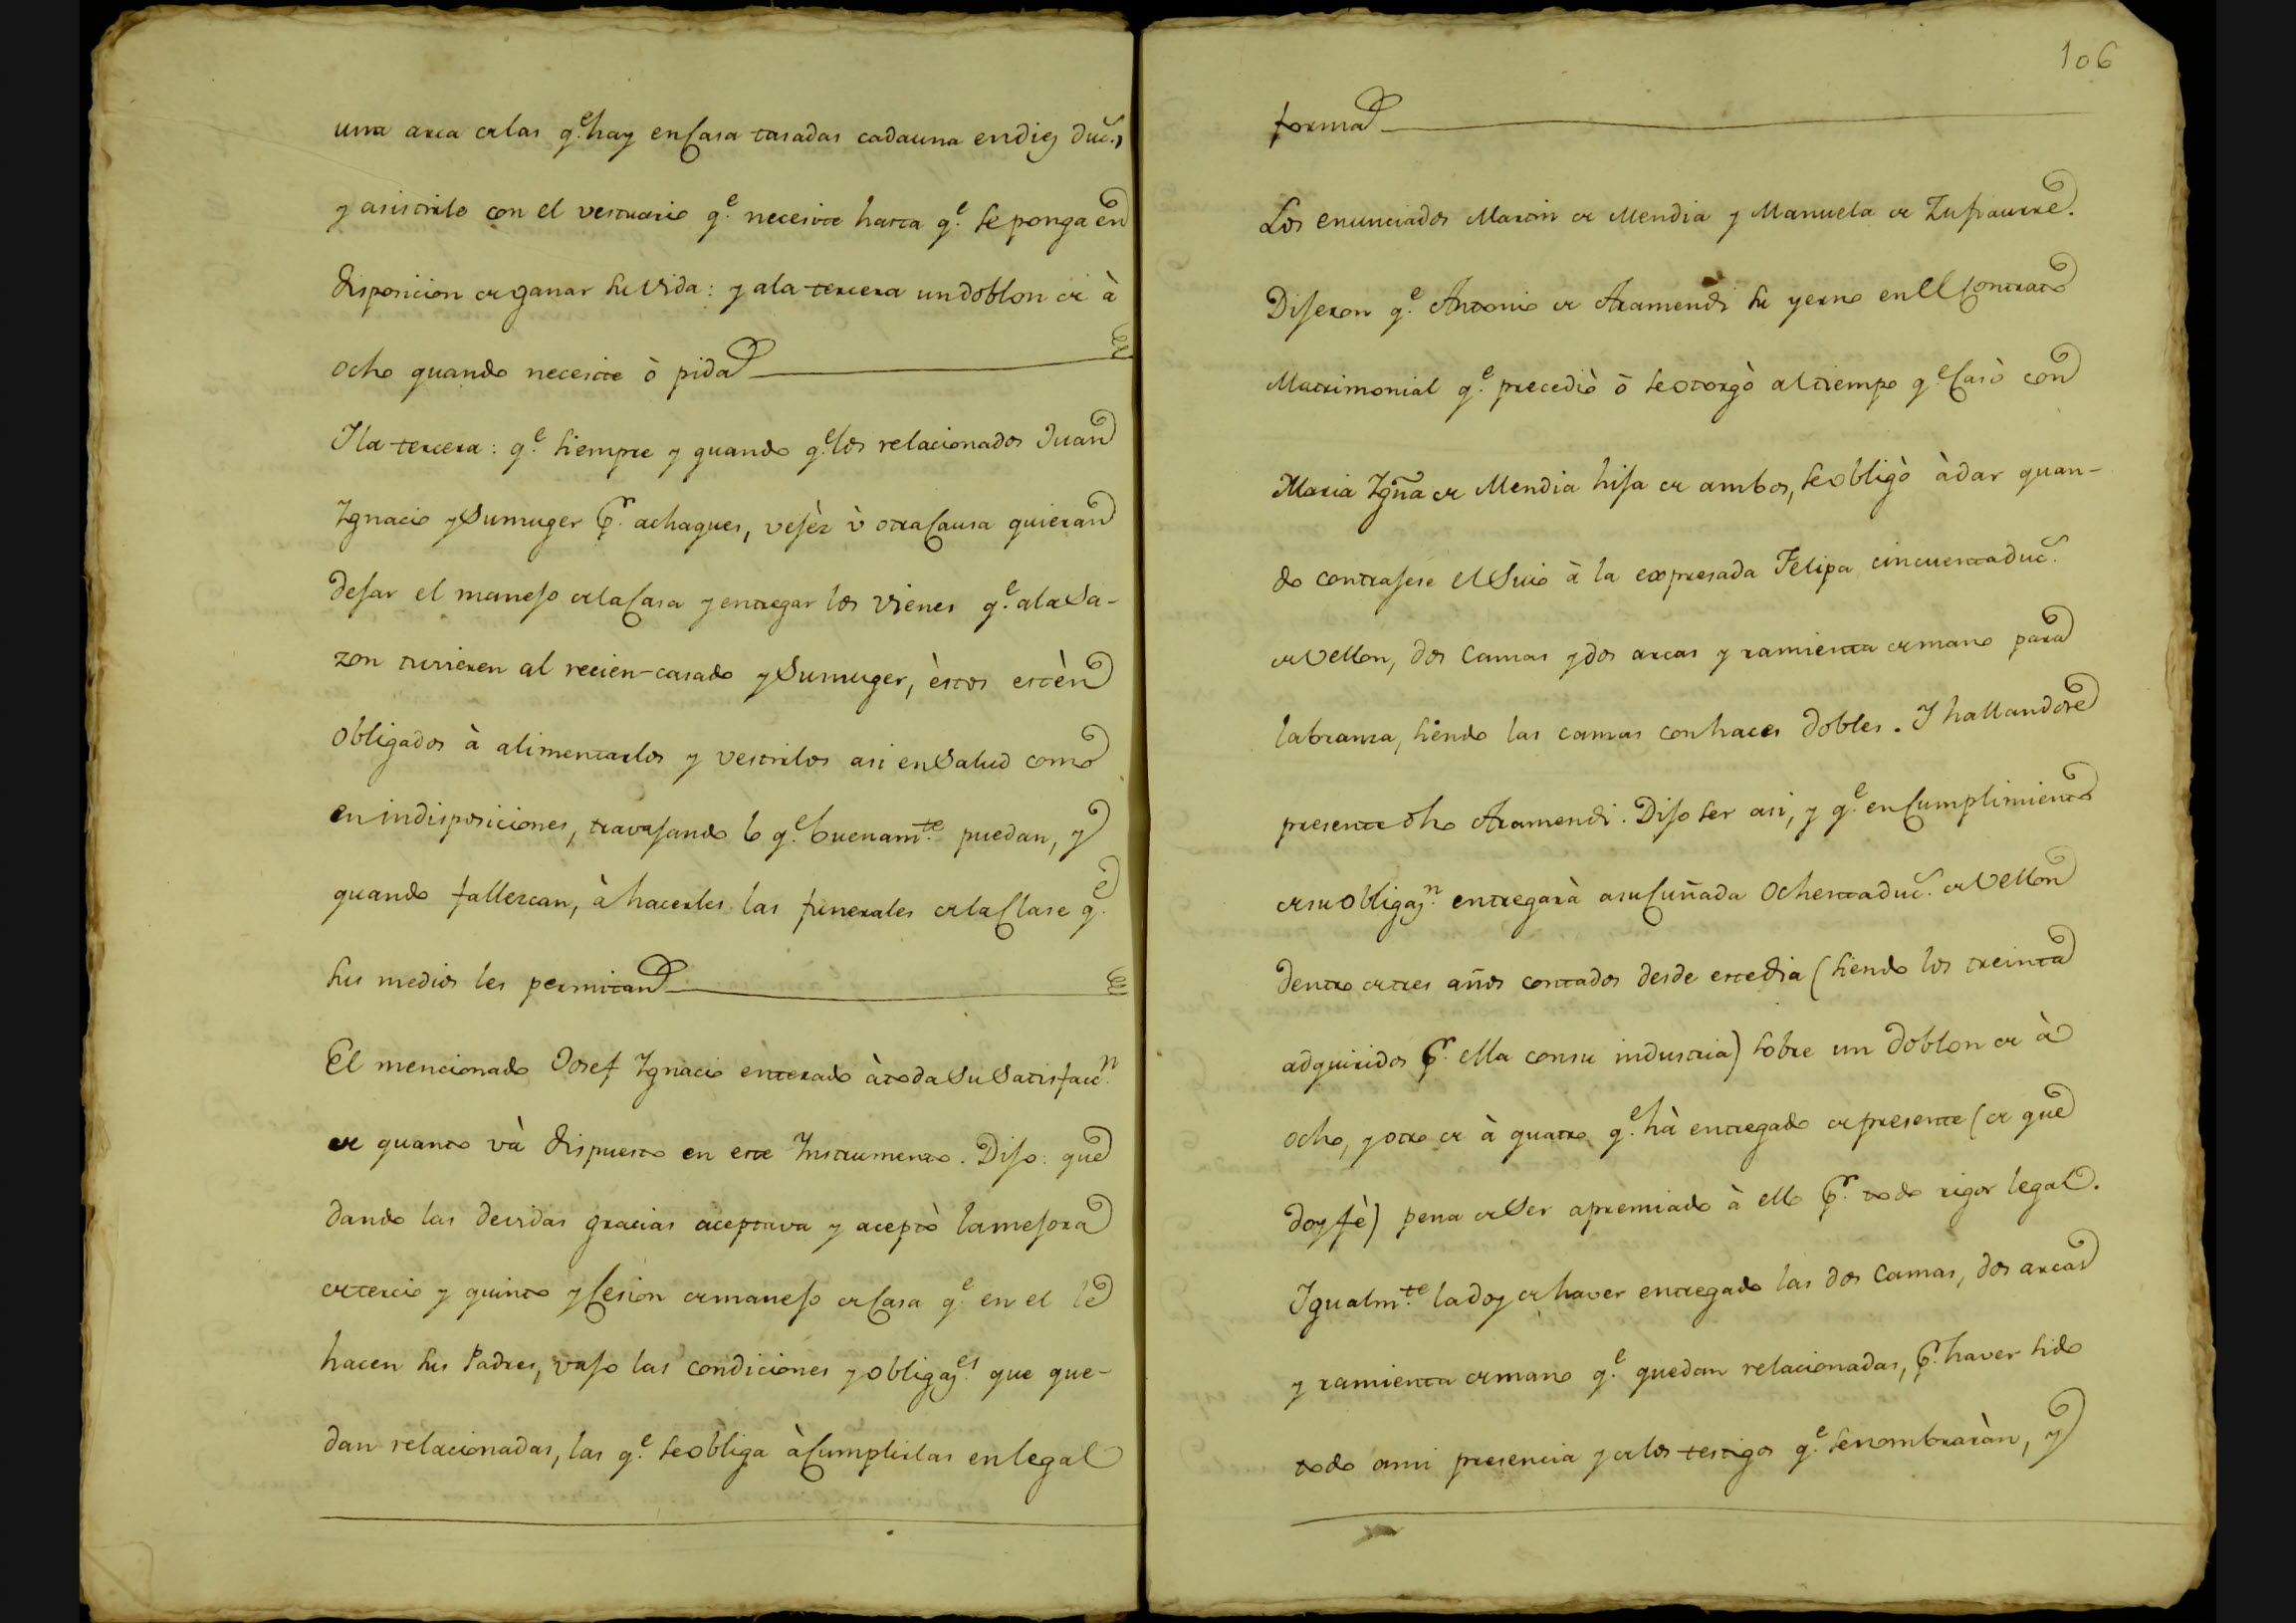 una arca de las q.e hay en Casa tasadas cada una en diez duc.s
y asistirle con el vestuario q.e necesite hasta q.e se ponga en
disposicion de ganar su vida: y ala tercera un doblon de à
ocho quando necesite ò pida
Y la tercera: q.e siempre y quando q.e los relacionados Juan
Ignacio y Su muger p.r achaques, vejèz ù otra Causa quieran
dejar el manejo de la Casa y entregar los vienes q.e ala Sa-
zon tuvieren al recien-casado y Su muger, èstos estèn
obligados à alimentarlos y vestirlos asi en Salud como
en indisposiciones, travajando lo q.e buenam.te puedan, y
quando fallezcan, à hacerles las funerales de la Clase q.e
sus medios les permitan
El mencionado Josef Ignacio enterado à toda Su Satisfacc.n
de quanto và dispuesto en este Instrumento. Dijo: que
dando las devidas gracias aceptava y aceptò la mejora
de tercio y quinto y Cesion de manejo de Casa q.e en el le
hacen sus Padres, vajo las condiciones y obligaz.es que que-
dan relacionadas, las q.e se obliga à Cumplirlas en legal
106
forma
Los enunciados Martin de Mendia y Manuela de Zufiaurre.
Dijeron q.e Antonio de Aramendi su yerno en El Contrato
Matrimonial q.e precediò ò se otorgò al tiempo q.e Casò con
Maria Ign̄a de Mendia hija de ambos, se obligò à dar quan-
do contrajese el Suio à la expresada Felipa cincuenta duc.s
de Vellon, dos Camas y dos arcas y ramienta de mano para
labranza, siendo las camas con haces dobles. Y hallandose
presente dho Aramendi. Dijo ser asi, y q.e en Cumplimiento
de su obligaz.n entregarà a su Cuñada Ochenta duc.s de Vellon
dentro de tres años contados desde este dia (siendo los treinta
adquiridos p.r ella con su industria) sobre un doblon de à
ocho, y otro de à quatro q.e hà entregado de presente (de que
doy fè) pena de Ser apremiado à ello p.r todo rigor legal.
Igualm.te la doy de haver entregado las dos Camas, dos arcas
y ramienta de mano q.e quedan relacionadas, p.r haver sido
todo a mi presencia y de los testigos q.e se nombraràn, y